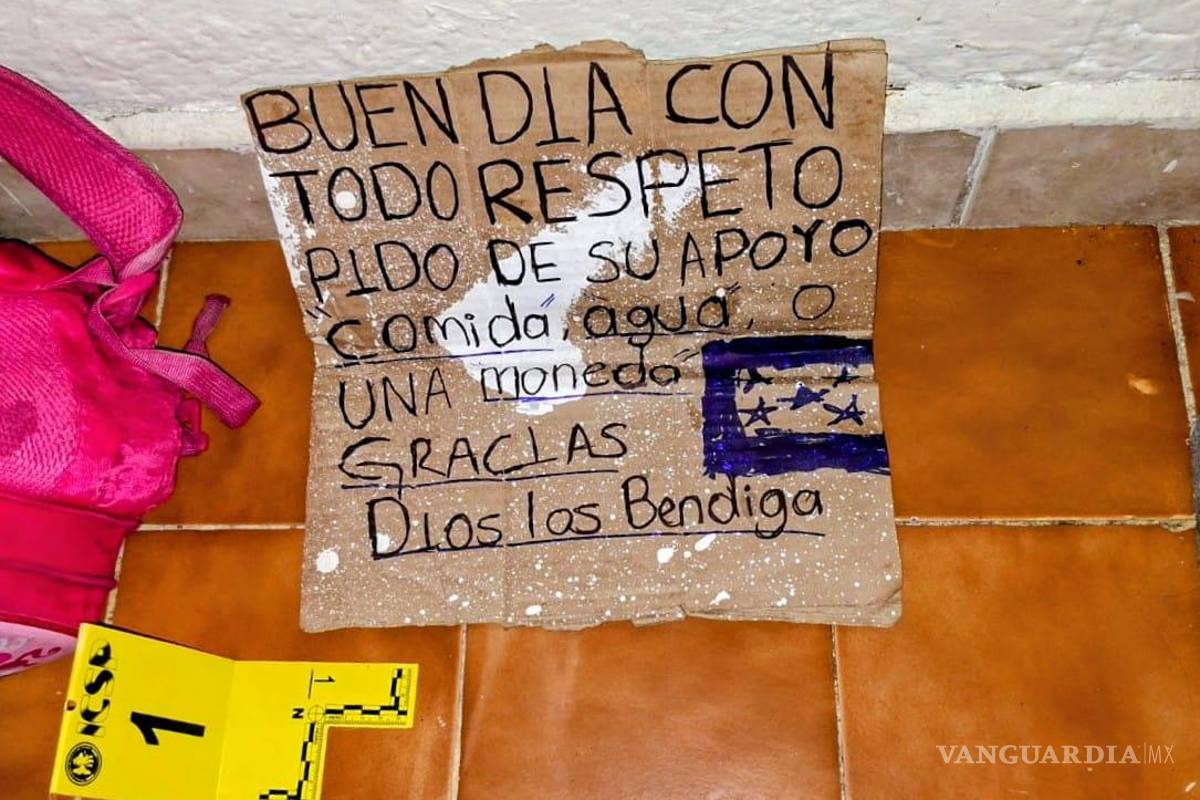 BUEN DIA CON
TODO RESPETO
PIDO DE SU APOYO
"comida", "agua", O
UNA "moneda"
GRACIAS
Dios los Bendiga
ICSP
1
1
N
VANGUARDIA|MX